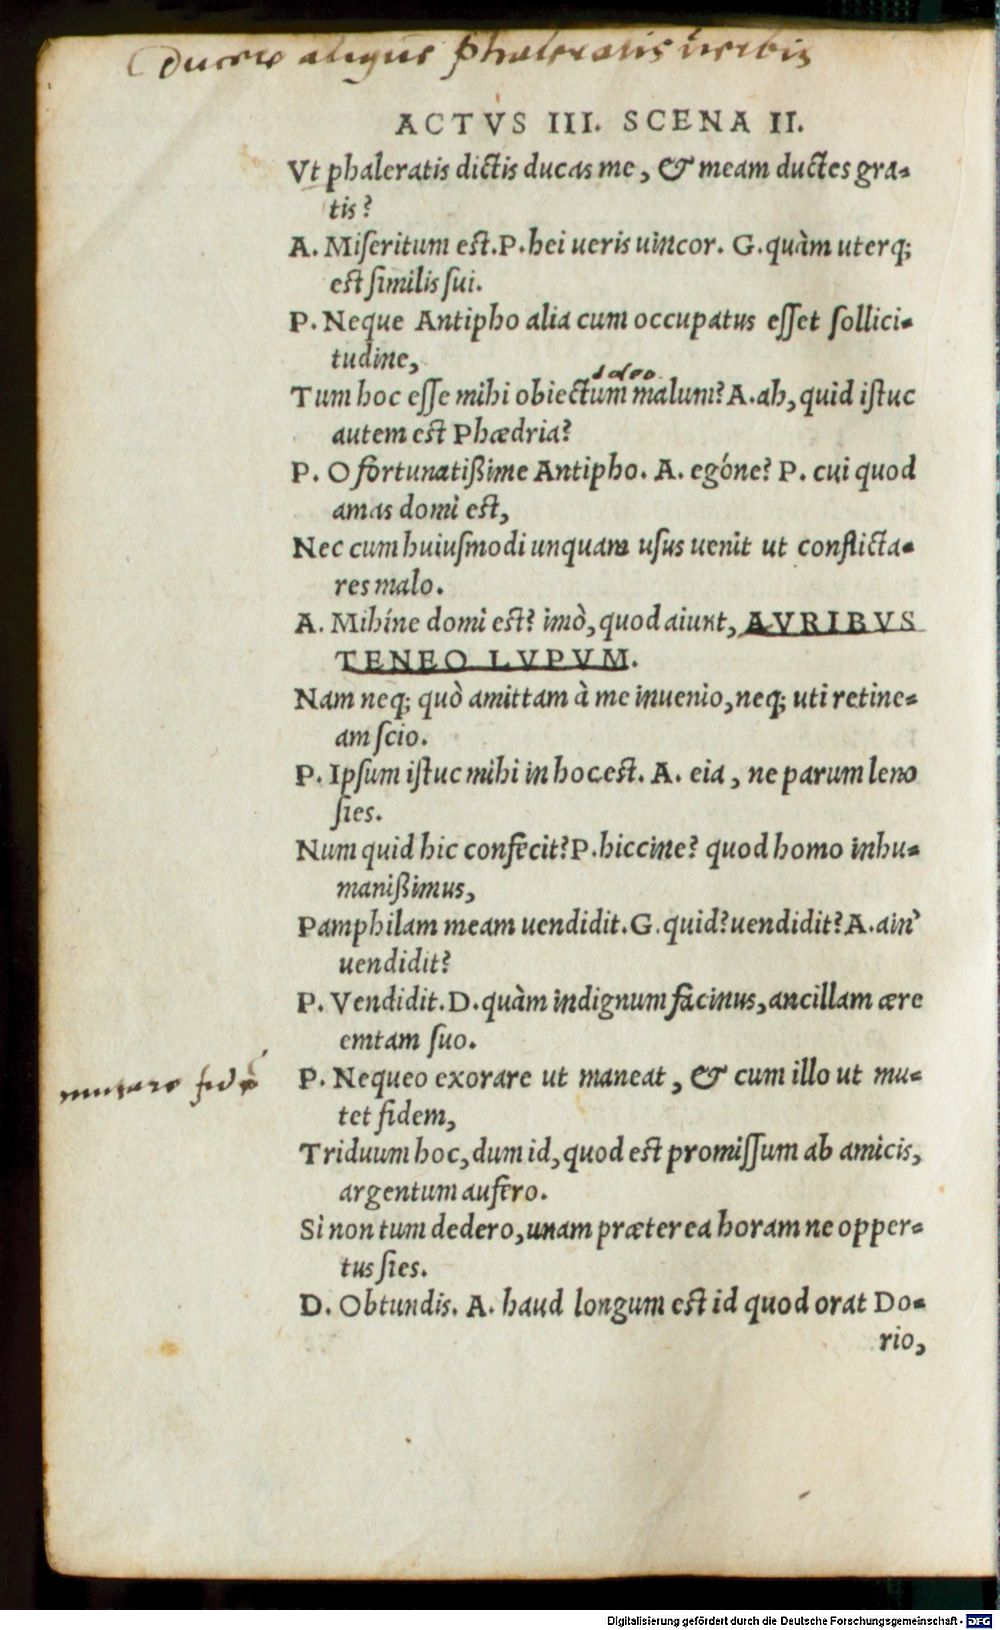 Ducere aliquē phaleratis verbis
ACTVS III. SCENA II.
Vt phaleratis dictis ducas me, & meam ductes gra-
tis?
A. Miſeritum est. P. hei ueris uincor. G. quàm uterq;
est ſimilis ſui.
P. Neque Antipho alia cum occupatus eſſet ſollici-
tudine,
Tum hoc eſſe mihi obiectum malum? A. ah, quid iſtuc
autem est Phædria?
P. O fortunatißime Antipho. A. egóne? P. cui quod
amas domi est,
Nec cum huiuſmodi unquam uſus uenit ut conflicta-
res malo.
A. Mihíne domi est? imò, quod aiunt, AVRIBVS
TENEO LVPVM.
Nam neq; quò amittam à me inuenio, neq; uti retine-
am ſcio.
P. Ipſum iſtuc mihi in hoc est. A. eia, ne parum leno
ſies.
Num quid hic confecit? P. hiccine? quod homo inhu-
manißimus,
Pamphilam meam uendidit. G. quid? uendidit? A. ain'
uendidit?
P. Vendidit. D. quàm indignum facinus, ancillam ære
emtam ſuo.
mutare fidē
P. Nequeo exorare ut maneat, & cum illo ut mu-
tet fidem,
Triduum hoc, dum id, quod est promiſſum ab amicis,
argentum aufero.
Si non tum dedero, unam præterea horam ne opper-
tus ſies.
D. Obtundis. A. haud longum est id quod orat Do-
rio,
Digitalisierung gefördert durch die Deutsche Forschungsgemeinschaft - DFG